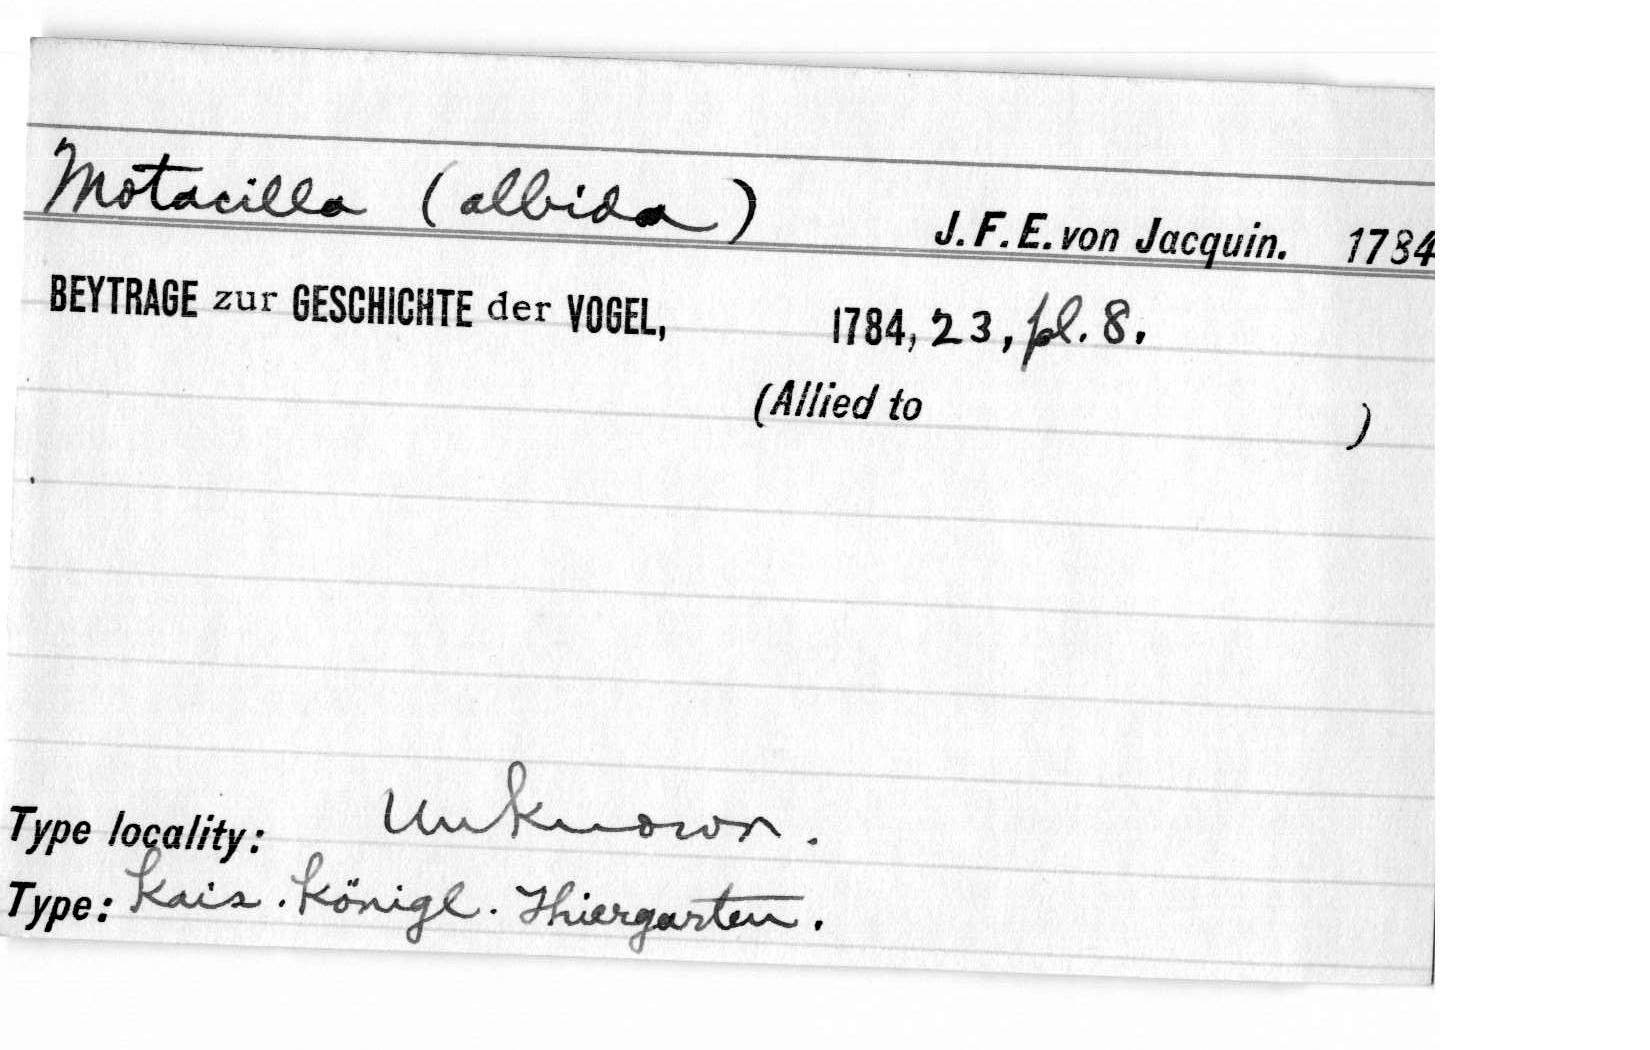 Motacilla (albida) J. F. E. von Jacquin. 1784
BEYTRAGE zur GESCHICHTE der VOGEL, 1784, 23, pl. 8.
(Allied to )
Type locality: Unknown.
Type: Kais. Königl. Thiergarten.